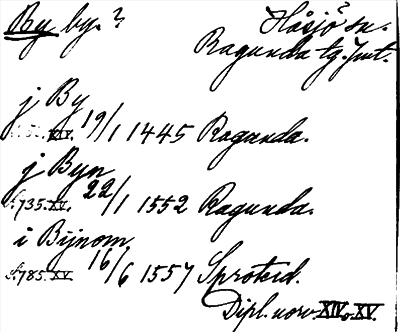 By by. ?
Håsjö sn.
Ragunda tg. Jmt.
j By
XIV. 19/1 1445 Ragunda.
j Byn
S. 735. XV. 22/1 1552 Ragunda.
i Bijnom
S. 785. XV 16/6 1557 Sproteid.
Dipl. norv. XIV o. XV.